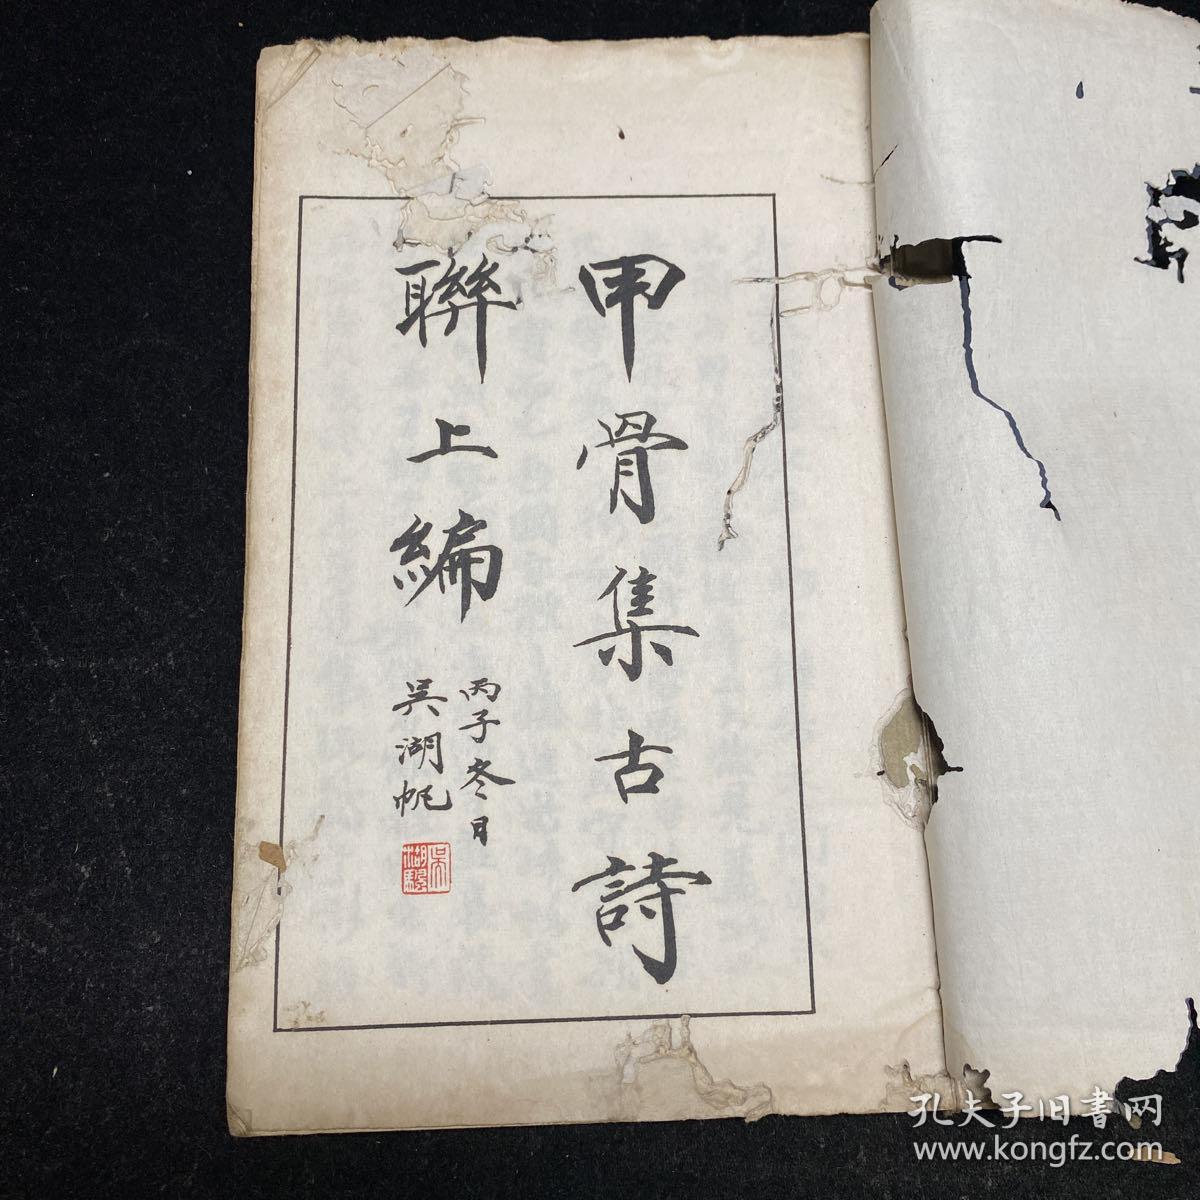 甲骨集古詩
聯上編
丙子冬日
吳湖帆
孔夫子旧書网
www.kongfz.com